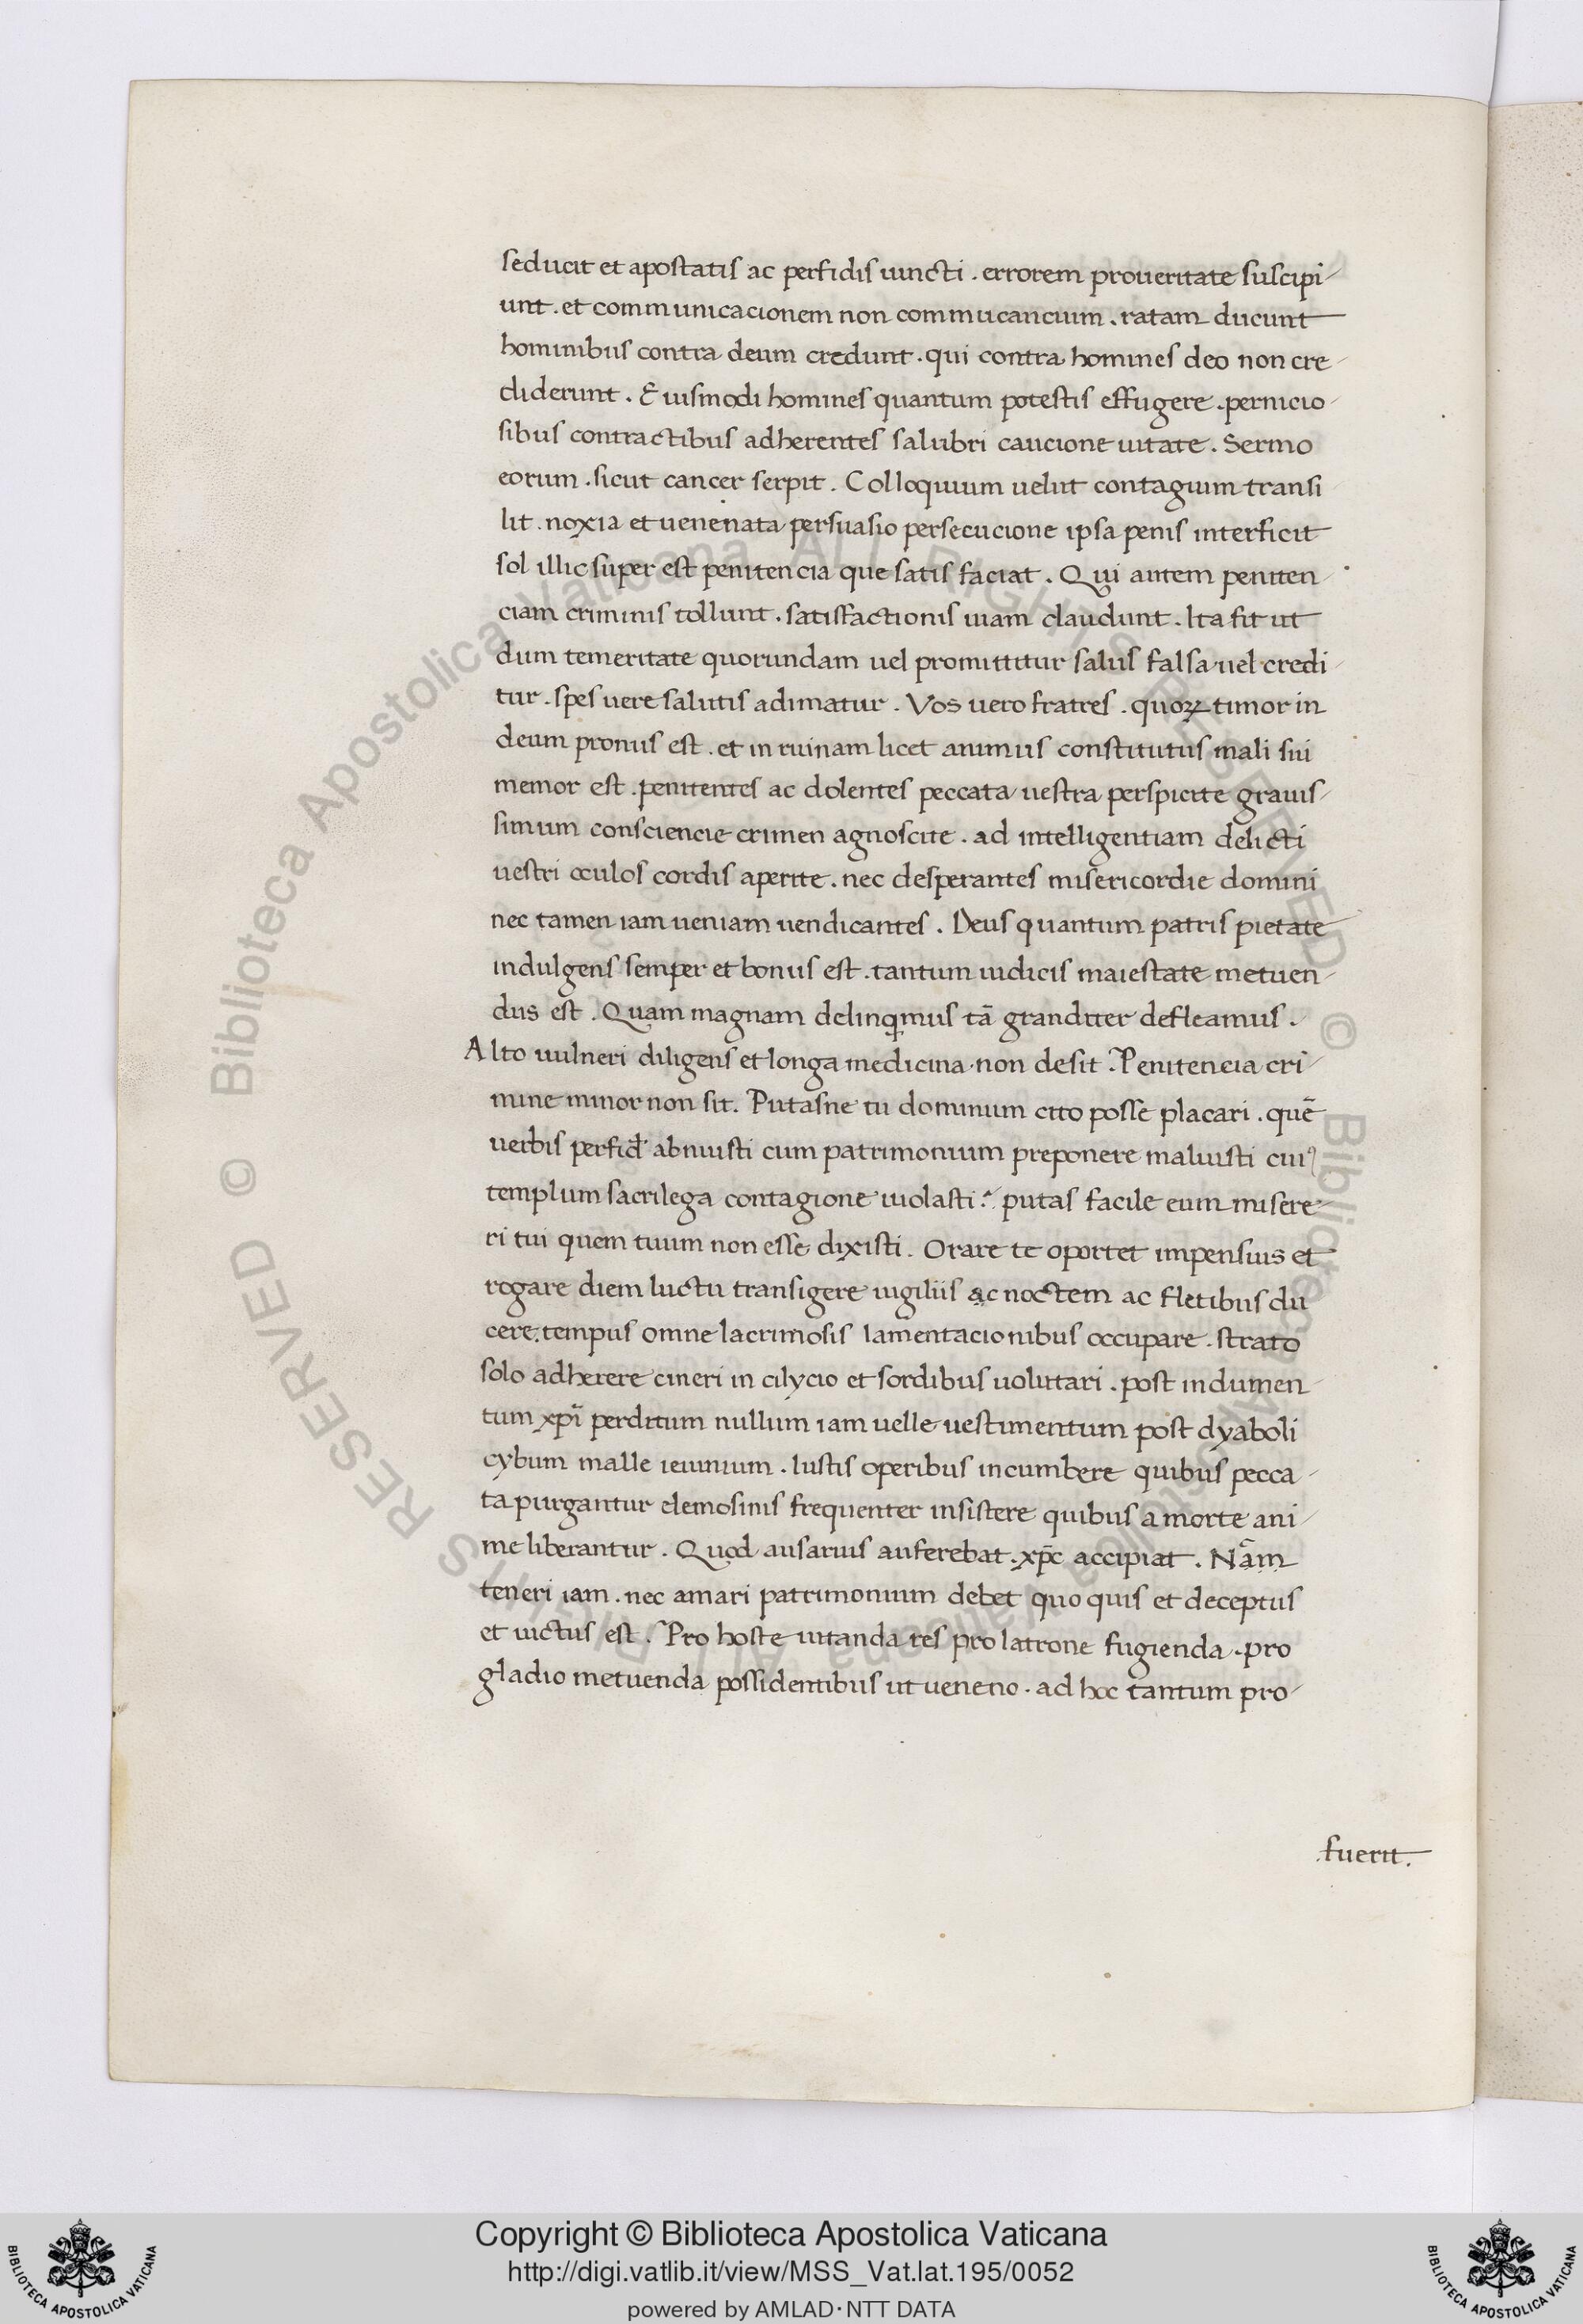 seducit et apostatis ac perfidis iuncti . errorem proueritate suscipi-
unt . et communicacionem non commucancium . ratam ducunt
hominibus contra deum credunt . qui contra homines deo non cre-
diderunt . Eiusmodi homines quantum potestis effugere . pernicio-
sibus contractibus adherentes salubri caucione uitate . Sermo
eorum . sicut cancer serpit . Colloquium uelut contagium transi-
lit . noxia et uenenata persuasio persecucione ipsa penis interficit
sol illic super est penitencia que satis faciat . Qui autem peniten-
ciam criminis tollunt . satisfactionis uiam claudunt . Ita fit ut
dum temeritate quorundam uel promittitur salus falsa uel credi-
tur . spes uere salutis adimatur . Vos uero fratres . quoꝝ timor in
deum pronus est . et in ruinam licet animus constitutus mali sui
memor est . penitentes ac dolentes peccata uestra perspicite grauis-
simum consciencie crimen agnoscite . ad intelligentiam delicti
uestri oculos cordis aperite . nec desperantes misericordie domini
nec tamen iam ueniam uendicantes . Deus quantum patris pietate
indulgens semper et bonus est . tantum iudicis maiestate metuen-
dus est . Quam magnam delinq̇mus tā granditer defleamus .
Alto uulneri diligens et longa medicina non desit . Penitencia cri-
mine minor non sit . Putasne tu dominum cito posse placari . quē
uerbis perfid abnuisti cum patrimonium preponere maluisti cuiꝰ
templum sacrilega contagione uiolasti . putas facile eum misere-
ri tui quem tuum non esse dixisti . Orare te oportet impensius et
rogare diem luctu transigere uigiliis ac noctem ac fletibus du
cere . tempus omne lacrimosis lamentacionibus occupare . strato
solo adherere cineri in cilycio et sordibus uolutari . post indumen-
tum xp̄i perditum nullum iam uelle uestimentum post dyaboli
cybum malle ieiunium . Iustis operibus incumbere quibus pecca-
ta purgantur elemosinis frequenter insistere quibus a morte ani-
me liberantur . Quod ausarius auferebat . xp̄c accipiat . Nam
teneri iam . nec amari patrimonium debet quo quis et deceptus
et uictus est . Pro hoste uitanda res pro latrone fugienda . pro
gladio metuenda possidentibus ut ueneno . ad hoc tantum pro-
.fuerit.
© Biblioteca Apostolica Vaticana ALL RIGHTS RESERVED © Biblioteca Apostolica Vaticana ALL RIGHTS RESERVED
Copyright © Biblioteca Apostolica Vaticana
http://digi.vatlib.it/view/MSS_Vat.lat.195/0052
powered by AMLAD·NTT DATA
BIBLIOTECA APOSTOLICA VATICANA
BIBLIOTECA APOSTOLICA VATICANA